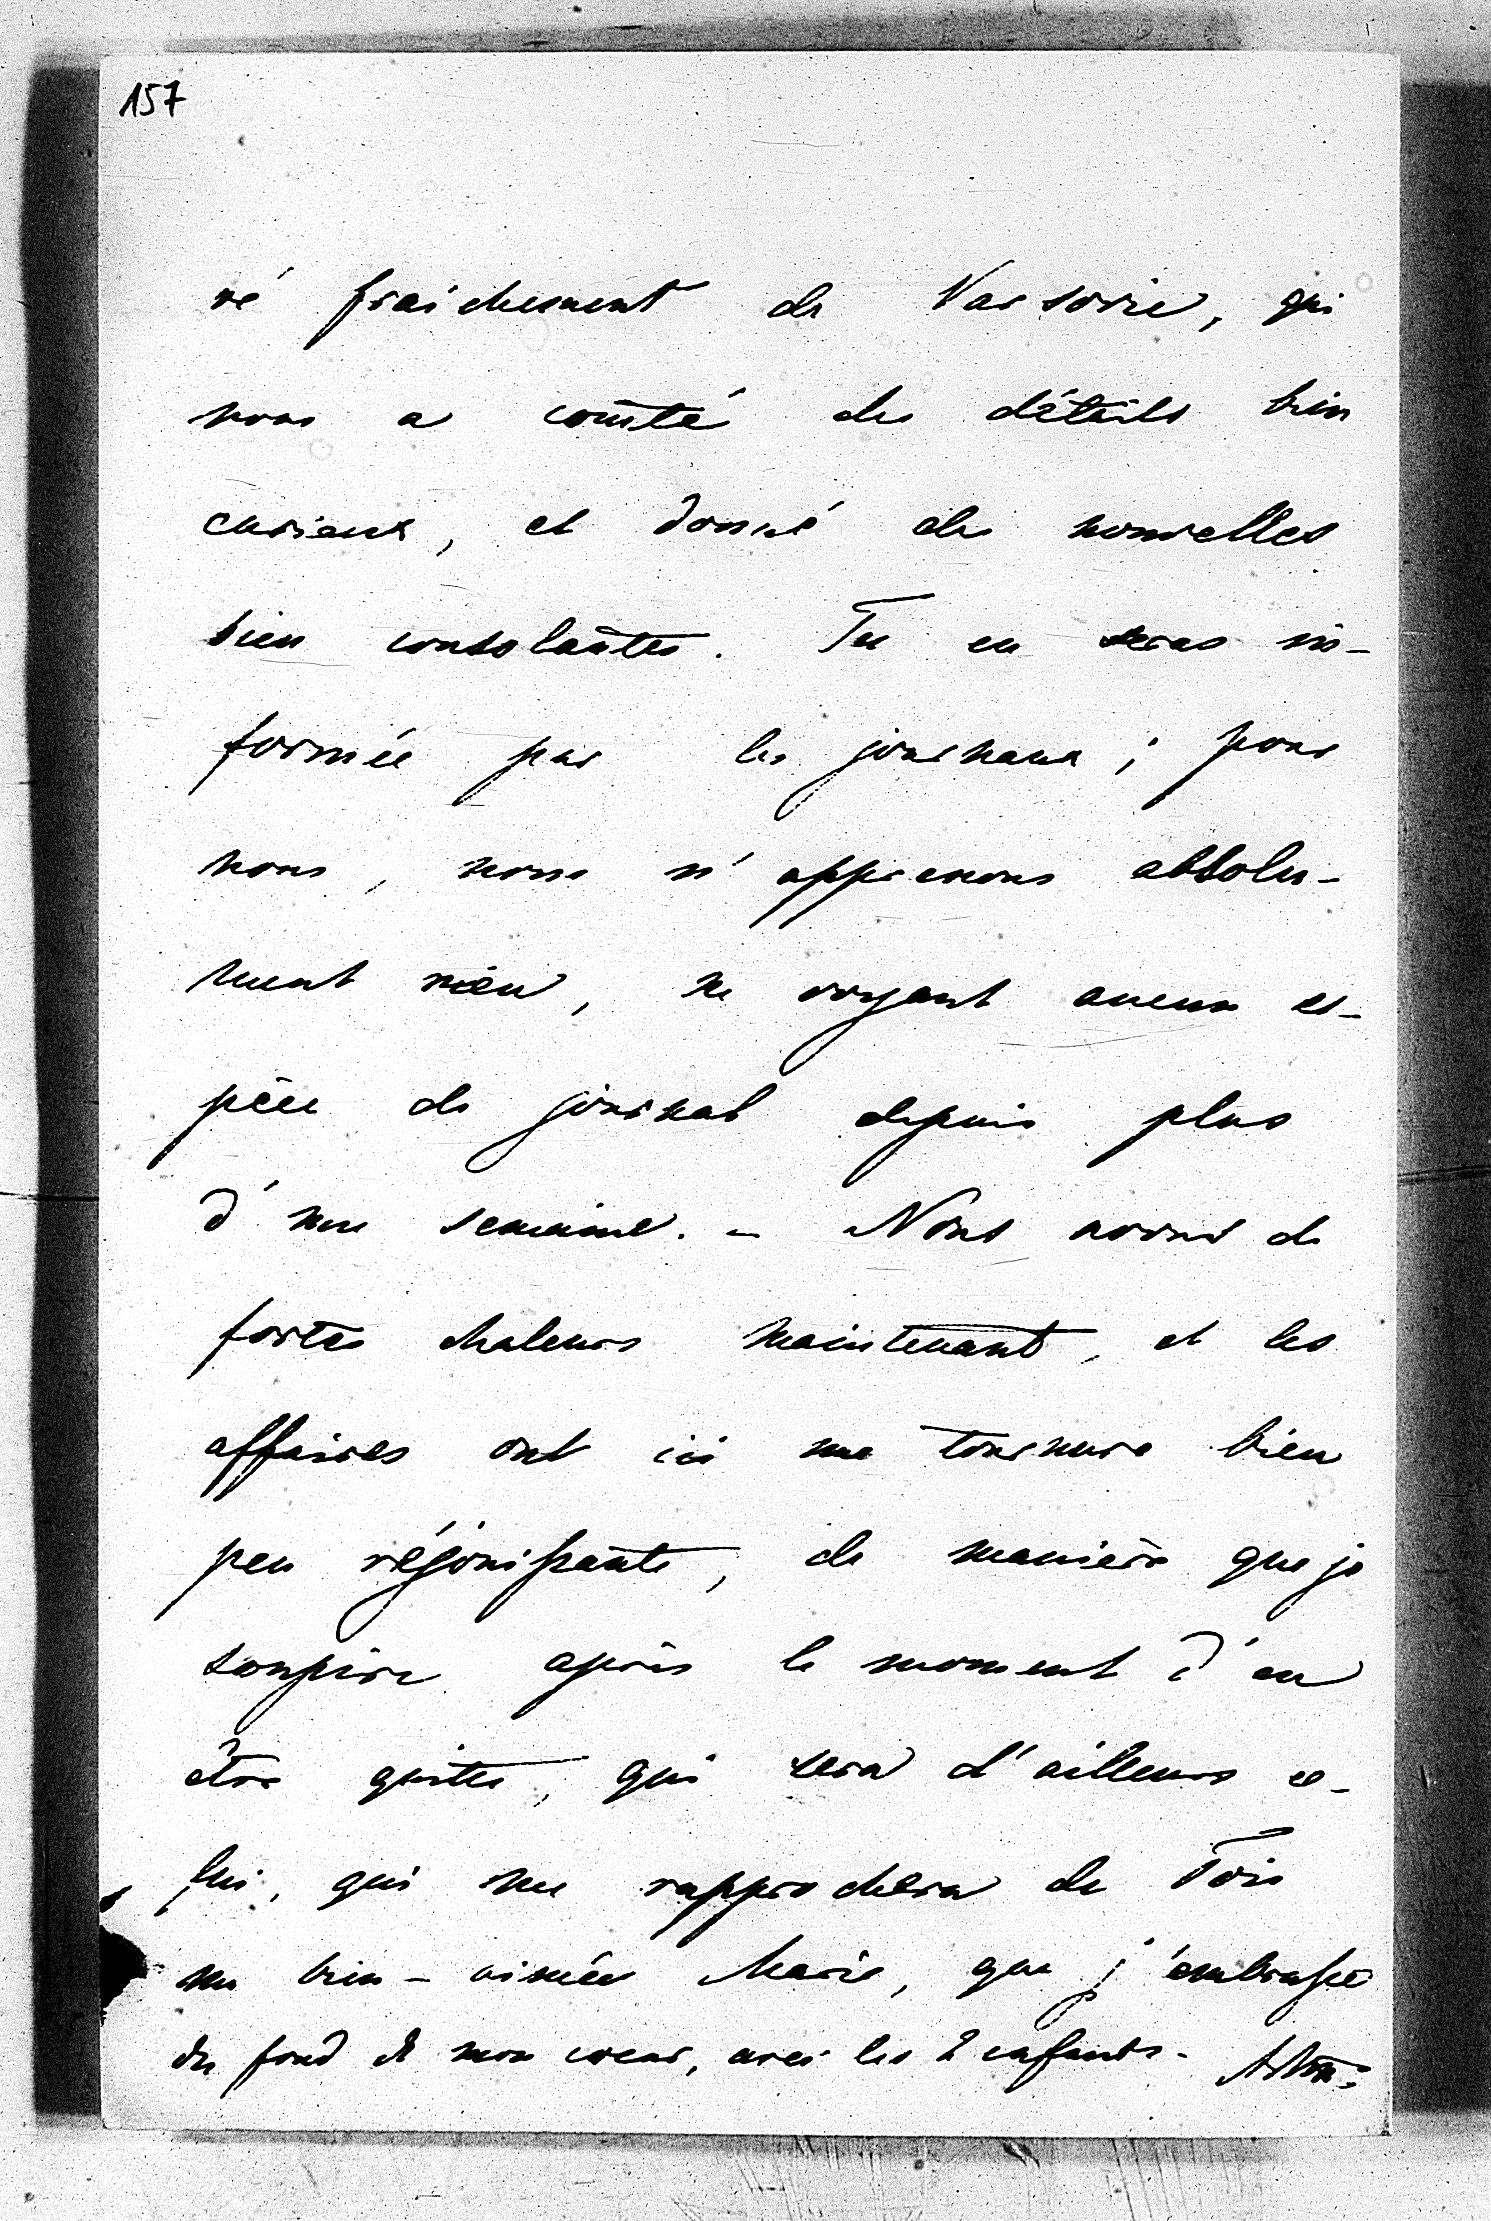 157
vé fraichement de Varsovie, qui
nous a conté des détails bien
curieux, et donné des nouvelles
bien consolantes. Tu en seras in-
formée par les journaux ; pour
nous, nous n'apprenons absolu-
ment rien, ne voyant aucun es-
pèce de journal depuis plus
d'une semaine. – Nous avons de
fortes chaleurs maintenant, et les
affaires ont ici une tournure bien
peu réjouissante, de manière que je
soupire après le moment d'en
être quitte, qui sera d'ailleurs ce-
lui, qui me rapprochera de Toi
ma bien-aimée Marie, que j'embrasse
du fond de mon coeur, avec les 2 enfants.